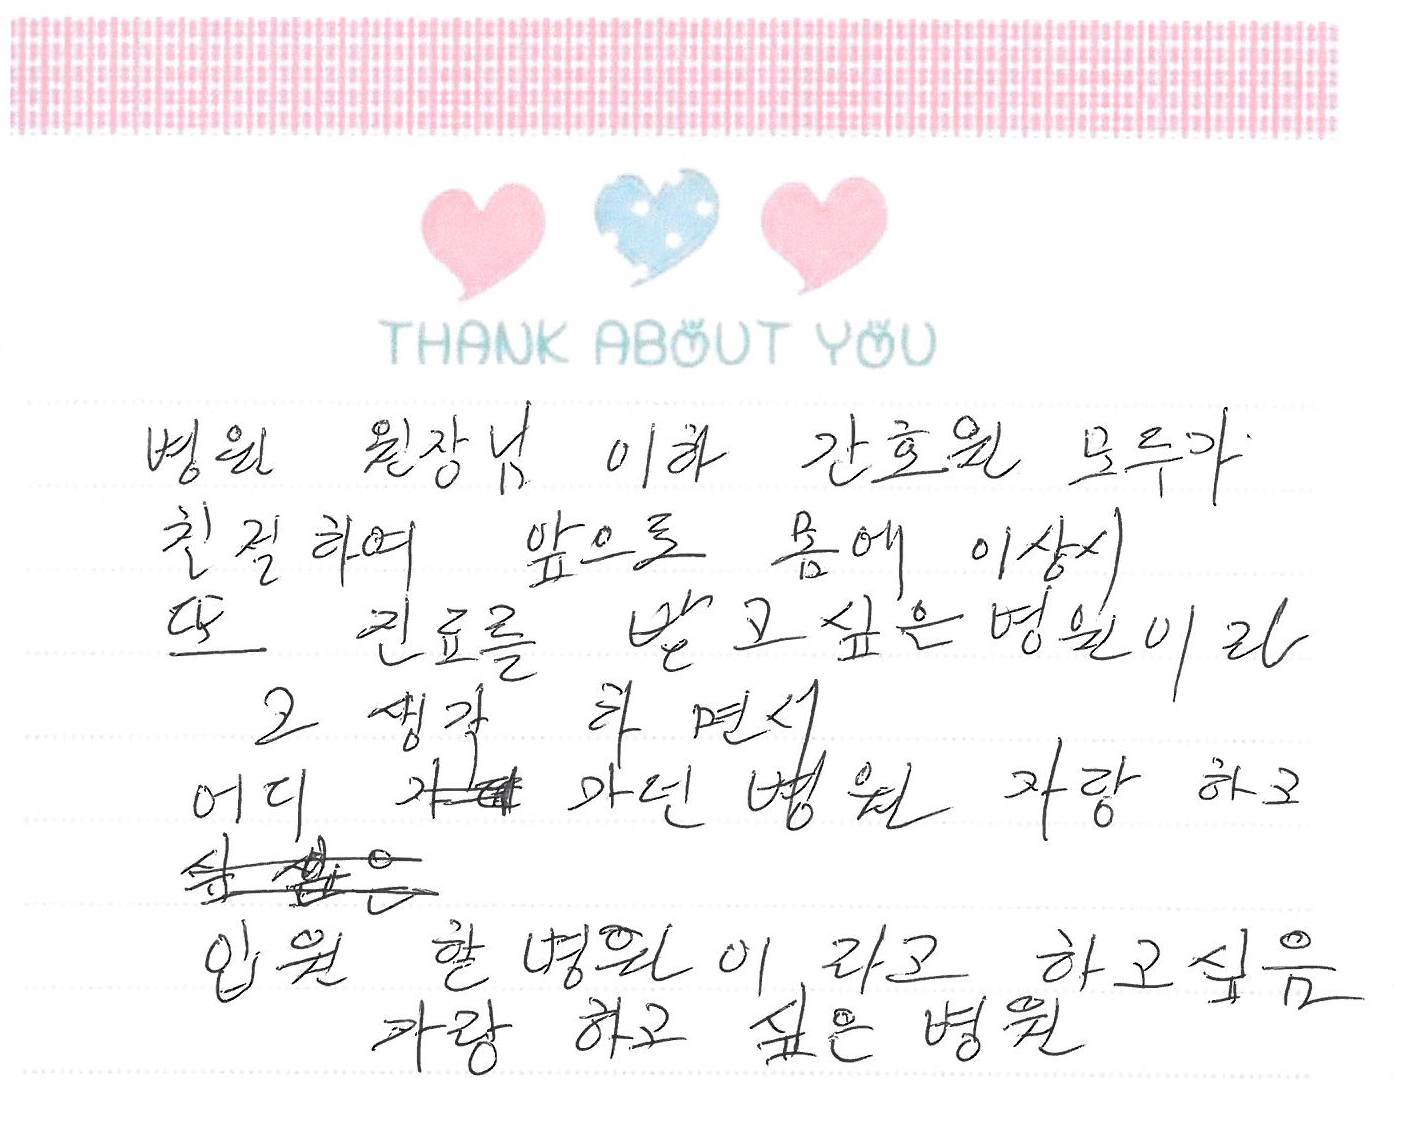 THANK ABOUT YOU
병원 원장님 이하 간호원 모두가
친절하여 앞으로 몸에 이상시
또 진료를 받고 싶은 병원이라
고 생각 하면서
어디 가던 병원 자랑 하고
입원 할 병원 이 라고 하고싶음
자랑 하고 싶은 병원